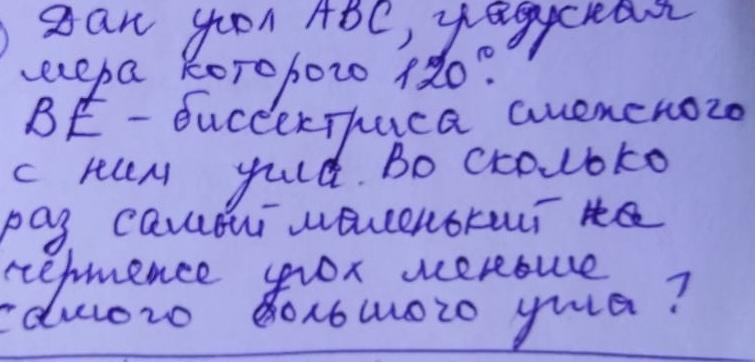 Дан угол ABC, градусная
мера которого 120°.
BE - биссектриса смежного
с ним угла. Во сколько
раз самый маленький на
чертеже угол меньше
самого большого угла?